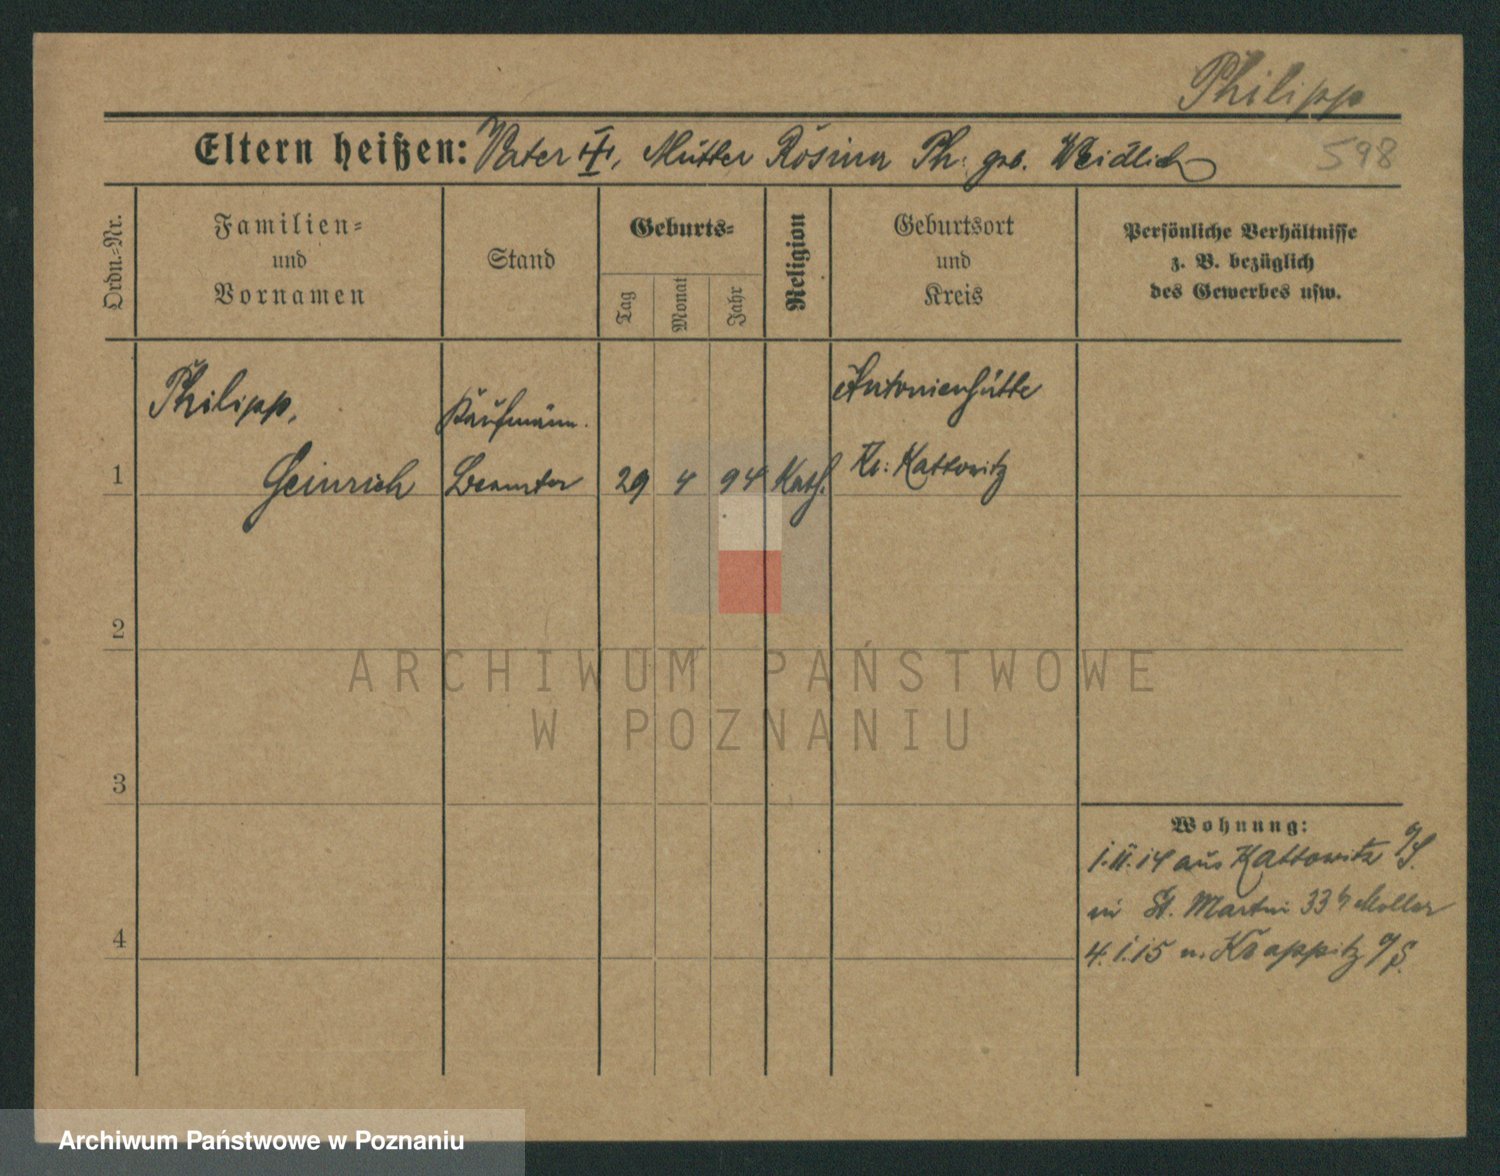 Philipp
Eltern heißen: Vater ‡, Mutter Rosina Ph. geb. Weidlich
598
Ordn.-Nr.
Familien-
und
Vornamen
Stand
Geburts-
Tag
Monat
Jahr
Religion
Geburtsort
und
Kreis
Persönliche Verhältnisse
z. B. bezüglich
des Gewerbes usw.
Philipp,
Kaufmänn.
Antonienhütte
1
Heinrich
Beamter
29
4
94
Kath.
Kr: Kattowitz
2
ARCHIWUM PAŃSTWOWE
W POZNANIU
3
Wohnung:
1.11.14 aus Kattowitz O/S.
St. Martin 33 b Moller
4
4.1.15 n. Krappitz O/S.
Archiwum Państwowe w Poznaniu